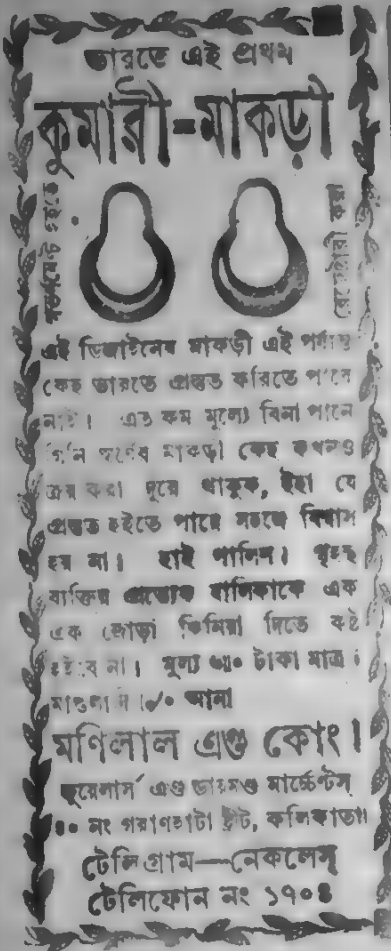 ভারতে এই প্রথম
কুমারী-মাকড়ী
গভর্ণমেন্ট হইতে
রেজেষ্টারী করা
এই ডিজাইনের মাকড়ী এই পর্য্যন্ত
কেহ ভারতে প্রস্তুত করিতে পারে
নাই। এত কম মূল্যে বিনা পানে
গিনি স্বর্ণের মাকড়ী কেহ কখনও
ক্রয় করা দূরে থাকুক, ইহা যে
প্রস্তুত হইতে পারে সহজে বিশ্বাস
হয় না। হাই পালিস। গৃহস্থ
ব্যক্তির প্রত্যেক বালিকাকে এক
এক জোড়া কিনিয়া দিতে কষ্ট
হইবে না। মূল্য টাকা মাত্র।
মাশুলাদি ।৵০ আনা
মণিলাল এণ্ড কোং।
জুয়েলার্স এণ্ড ডায়মণ্ড মার্চ্চেণ্টস্
৪০ নং গরাণহাটা ষ্ট্রীট, কলিকাতা।
টেলিগ্রাম—নেকলেস্
টেলিফোন নং ১৭০৪